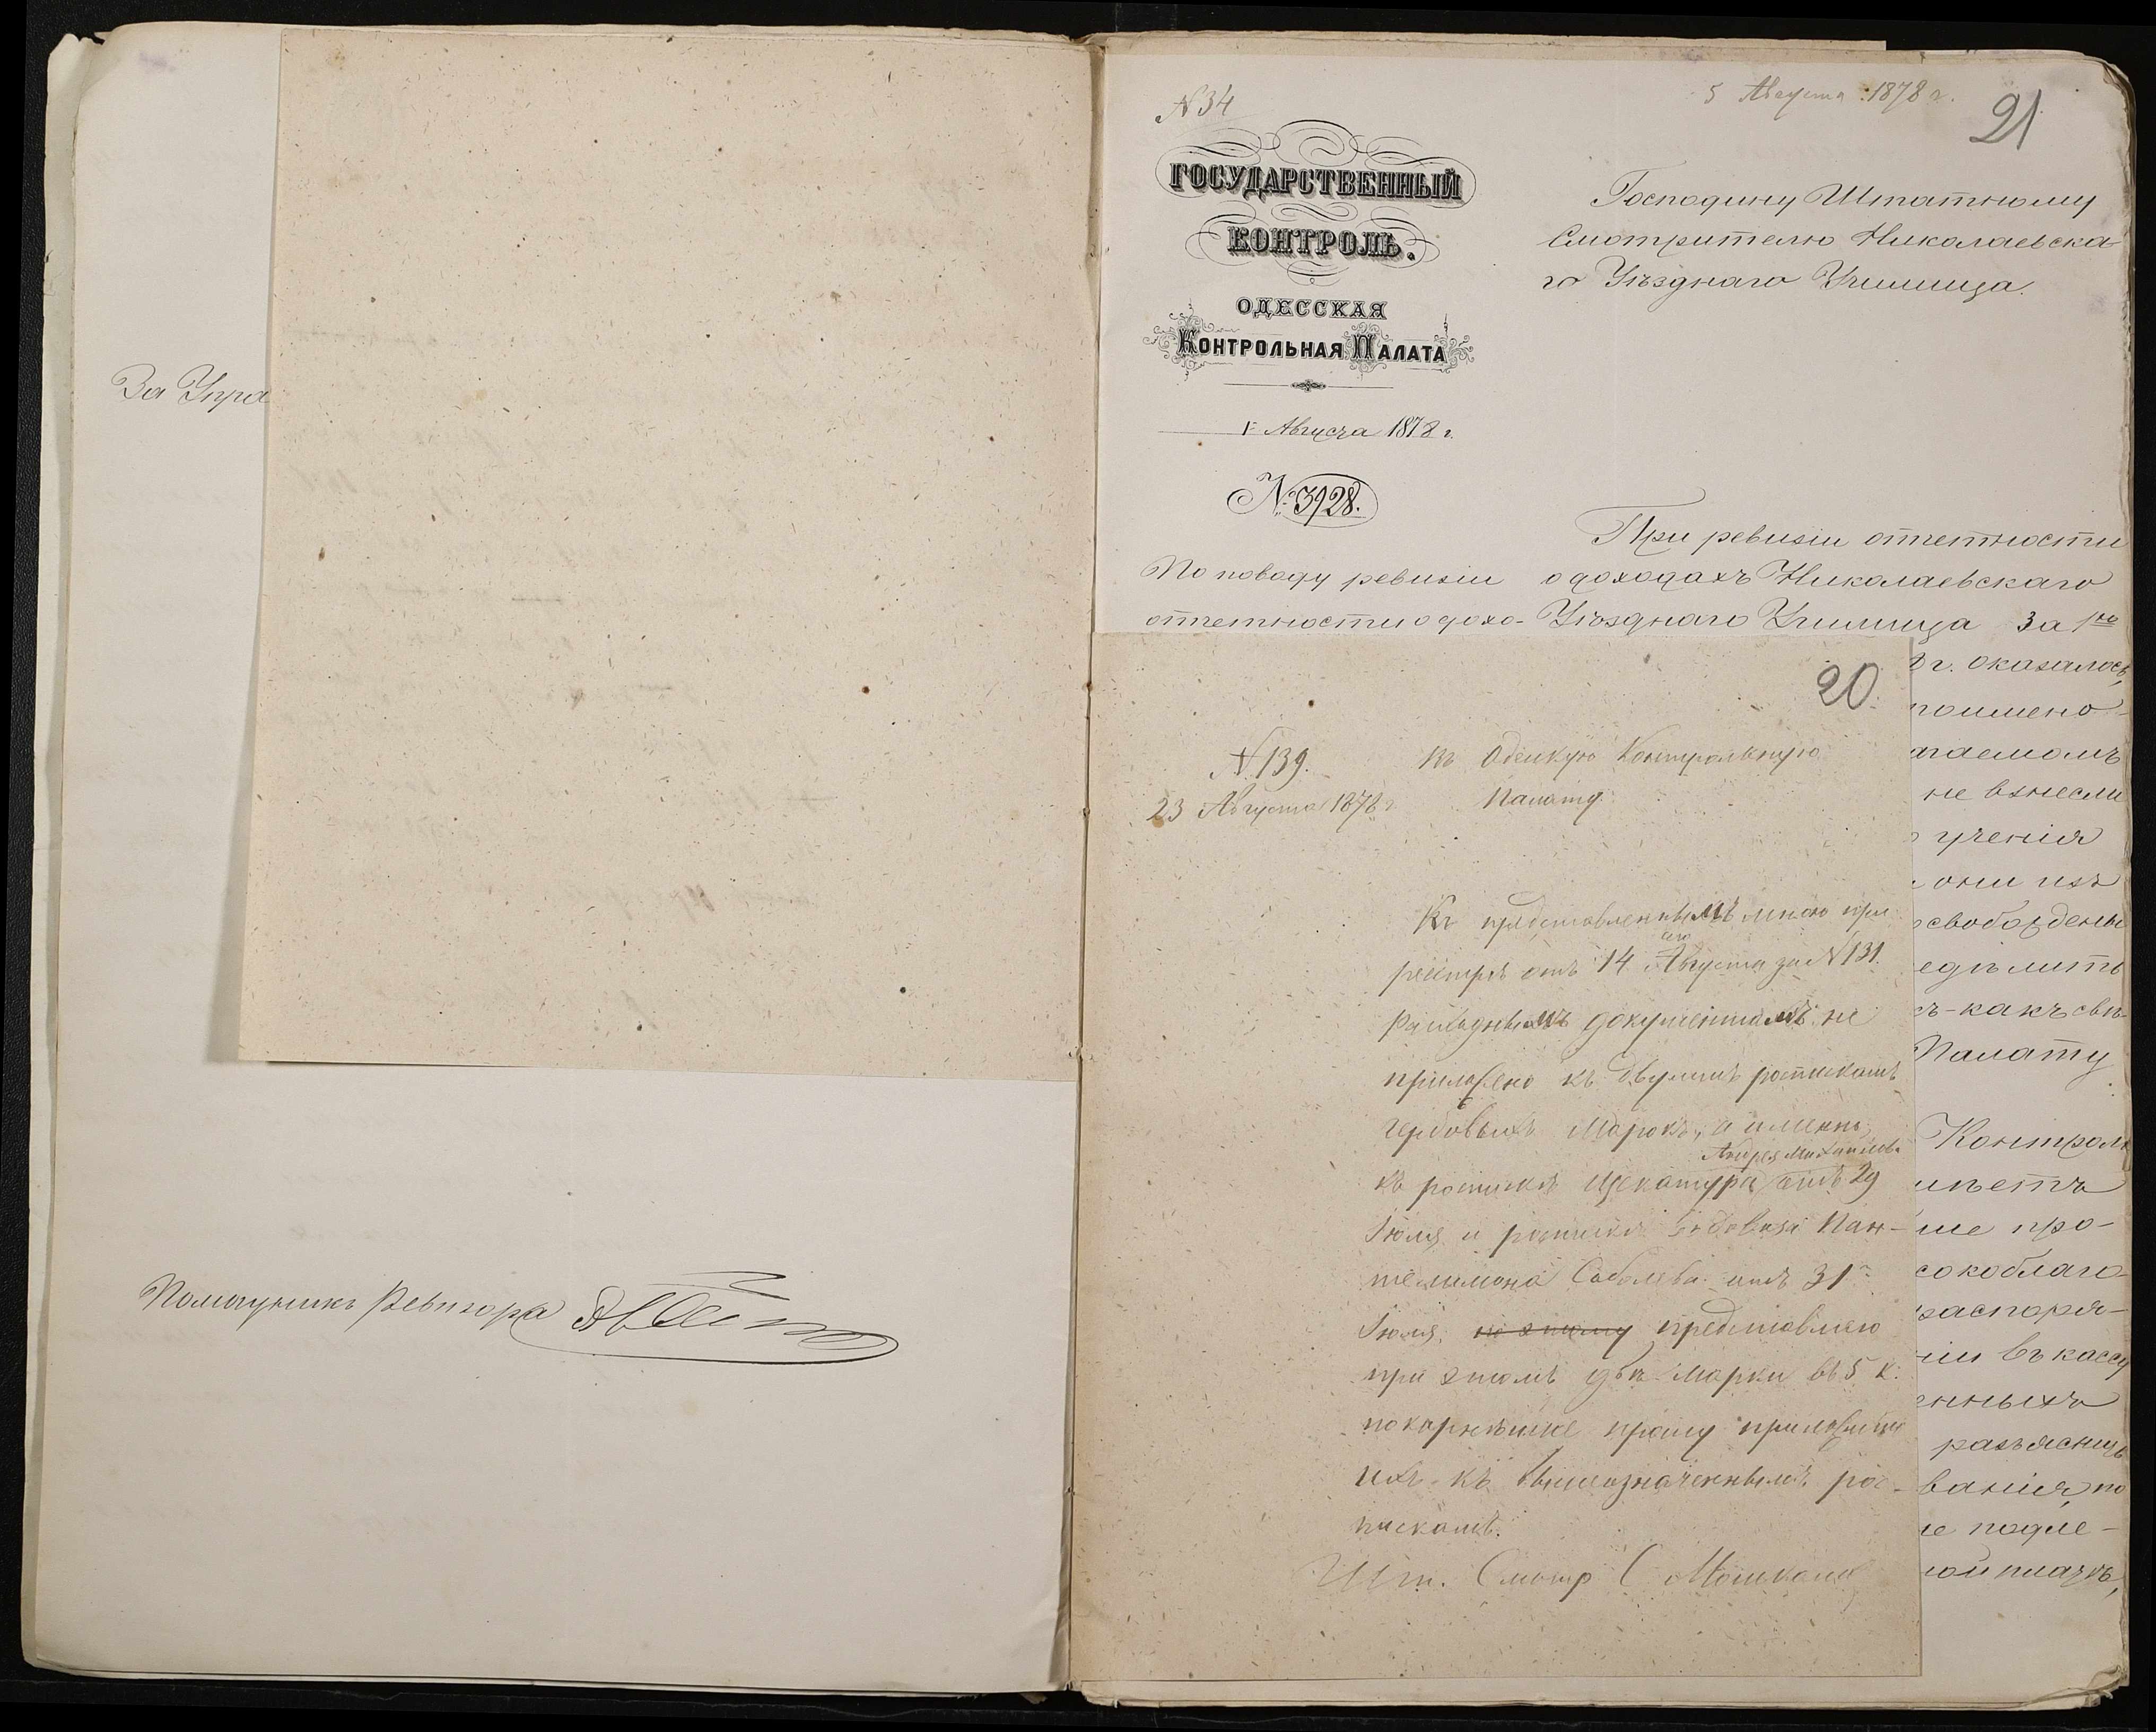 За Упра
Помощникъ Ревизора
№ 34
5 Августа 1878 г.
21
ГОСУДАРСТВЕННЫЙ
КОНТРОЛЬ.
ОДЕССКАЯ
КОНТРОЛЬНАЯ ПАЛАТА
1 Августа 1878 г.
№ 3928.
По поводу ревизіи
отчетности о дохо-
Господину Штатному
Смотрителю Николаевска-
го Уѣзднаго Училища.
При ревизіи отчетности
о доходахъ Николаевскаго
Уѣзднаго Училища за 1ю
г. оказалось,
поимено-
агаемомъ
не взнесли
ученія
они изъ
свобождены
едѣлить
ъ-какъ свѣ-
Палату
Контроль
ѣетъ
ше про-
сокоблаго-
распоря-
іи въ кассу
енныхъ
разъяснить
ванія, по
е подле-
ой платѣ,
20.
№ 139.
23 Августа 1878 г.
Въ Одесскую Контрольную
Палату.
Къ представленнымъ мною при
реестрѣ отъ 14 сего Августа за № 131.
расходнымъ документамъ не
приложено къ двумъ роспискамъ
гербовыхъ марокъ, а именно
къ роспискѣ Щекатура Андрея Михайлова отъ 29
Іюля и роспискѣ Пан-
телимона Соболева отъ 31
Іюля, по этому представляю
при этомъ двѣ марки въ 5 к.
покорнѣйше прошу приложить
ихъ къ вышеозначеннымъ рос-
пискамъ.
Шт. Смотр